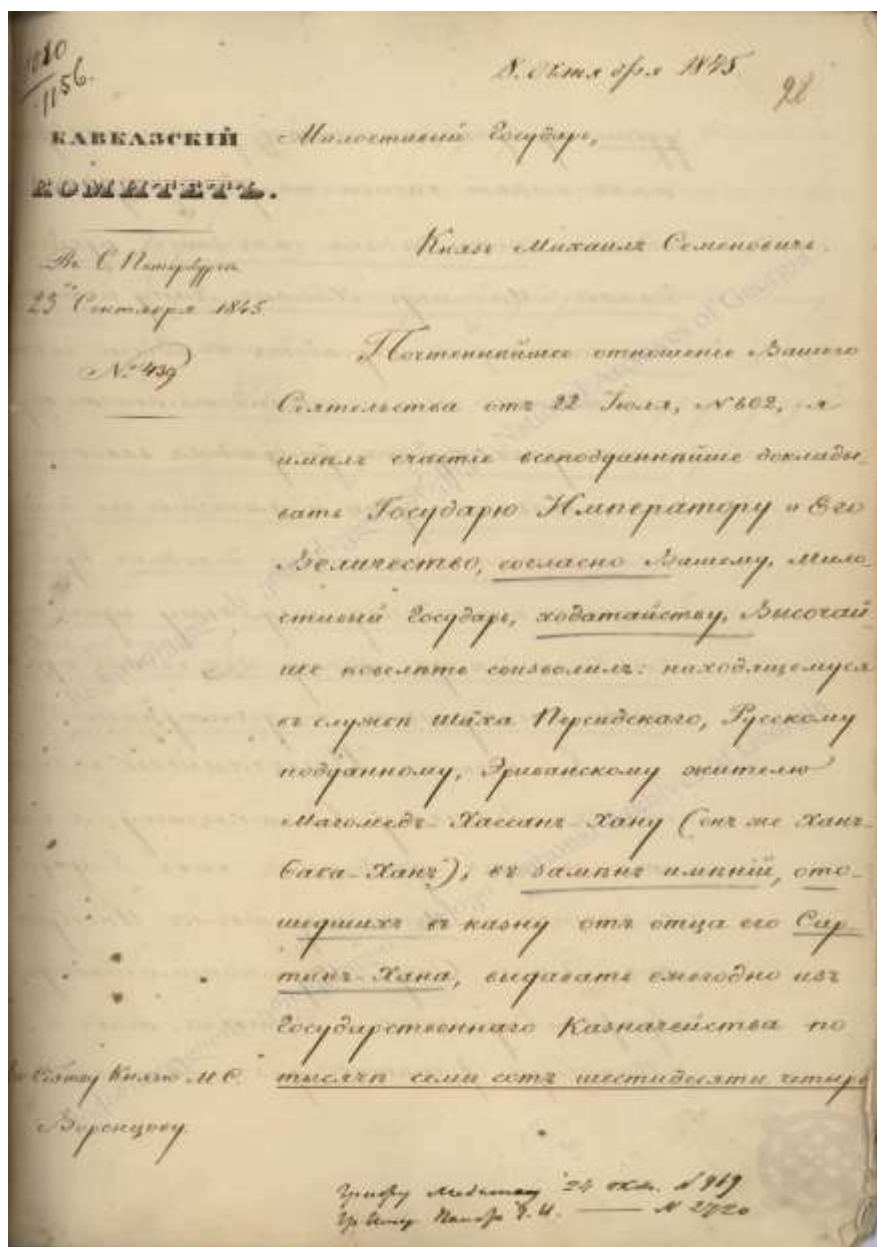 1156.
8. Октября 1845
КАВКАЗСКІЙ
КОМИТЕТЪ.
Въ С. Петербургѣ
23 Сентября 1845
№ 439
Милостивый Государь,
Князь Михаилъ Семеновичъ.
Почтеннѣйшее отношеніе Вашего
Сіятельства отъ 22 Іюля, № 602, я
имѣлъ счастіе всеподданнѣйше доклады-
вать Государю Императору и Его
Величество, согласно Вашему, Мило-
стивый Государь, ходатайству, Высочай-
ше повелѣть соизволилъ: находящемуся
въ службѣ Шаха Персидскаго, Русскому
подданному, Эриванскому жителю
Магомедъ-Хассанъ-Хану (онъ же Ханъ-
баба-Ханъ), въ замѣнъ имѣній, ото-
шедшихъ въ казну отъ отца его
Хана, выдавать ежегодно изъ
Государственнаго Казначейства по
тысячѣ семи сотъ шестидесяти четыре
Князю М. С.
Воронцову
24 окт. № 969
№ 2720
National Archives of Georgia